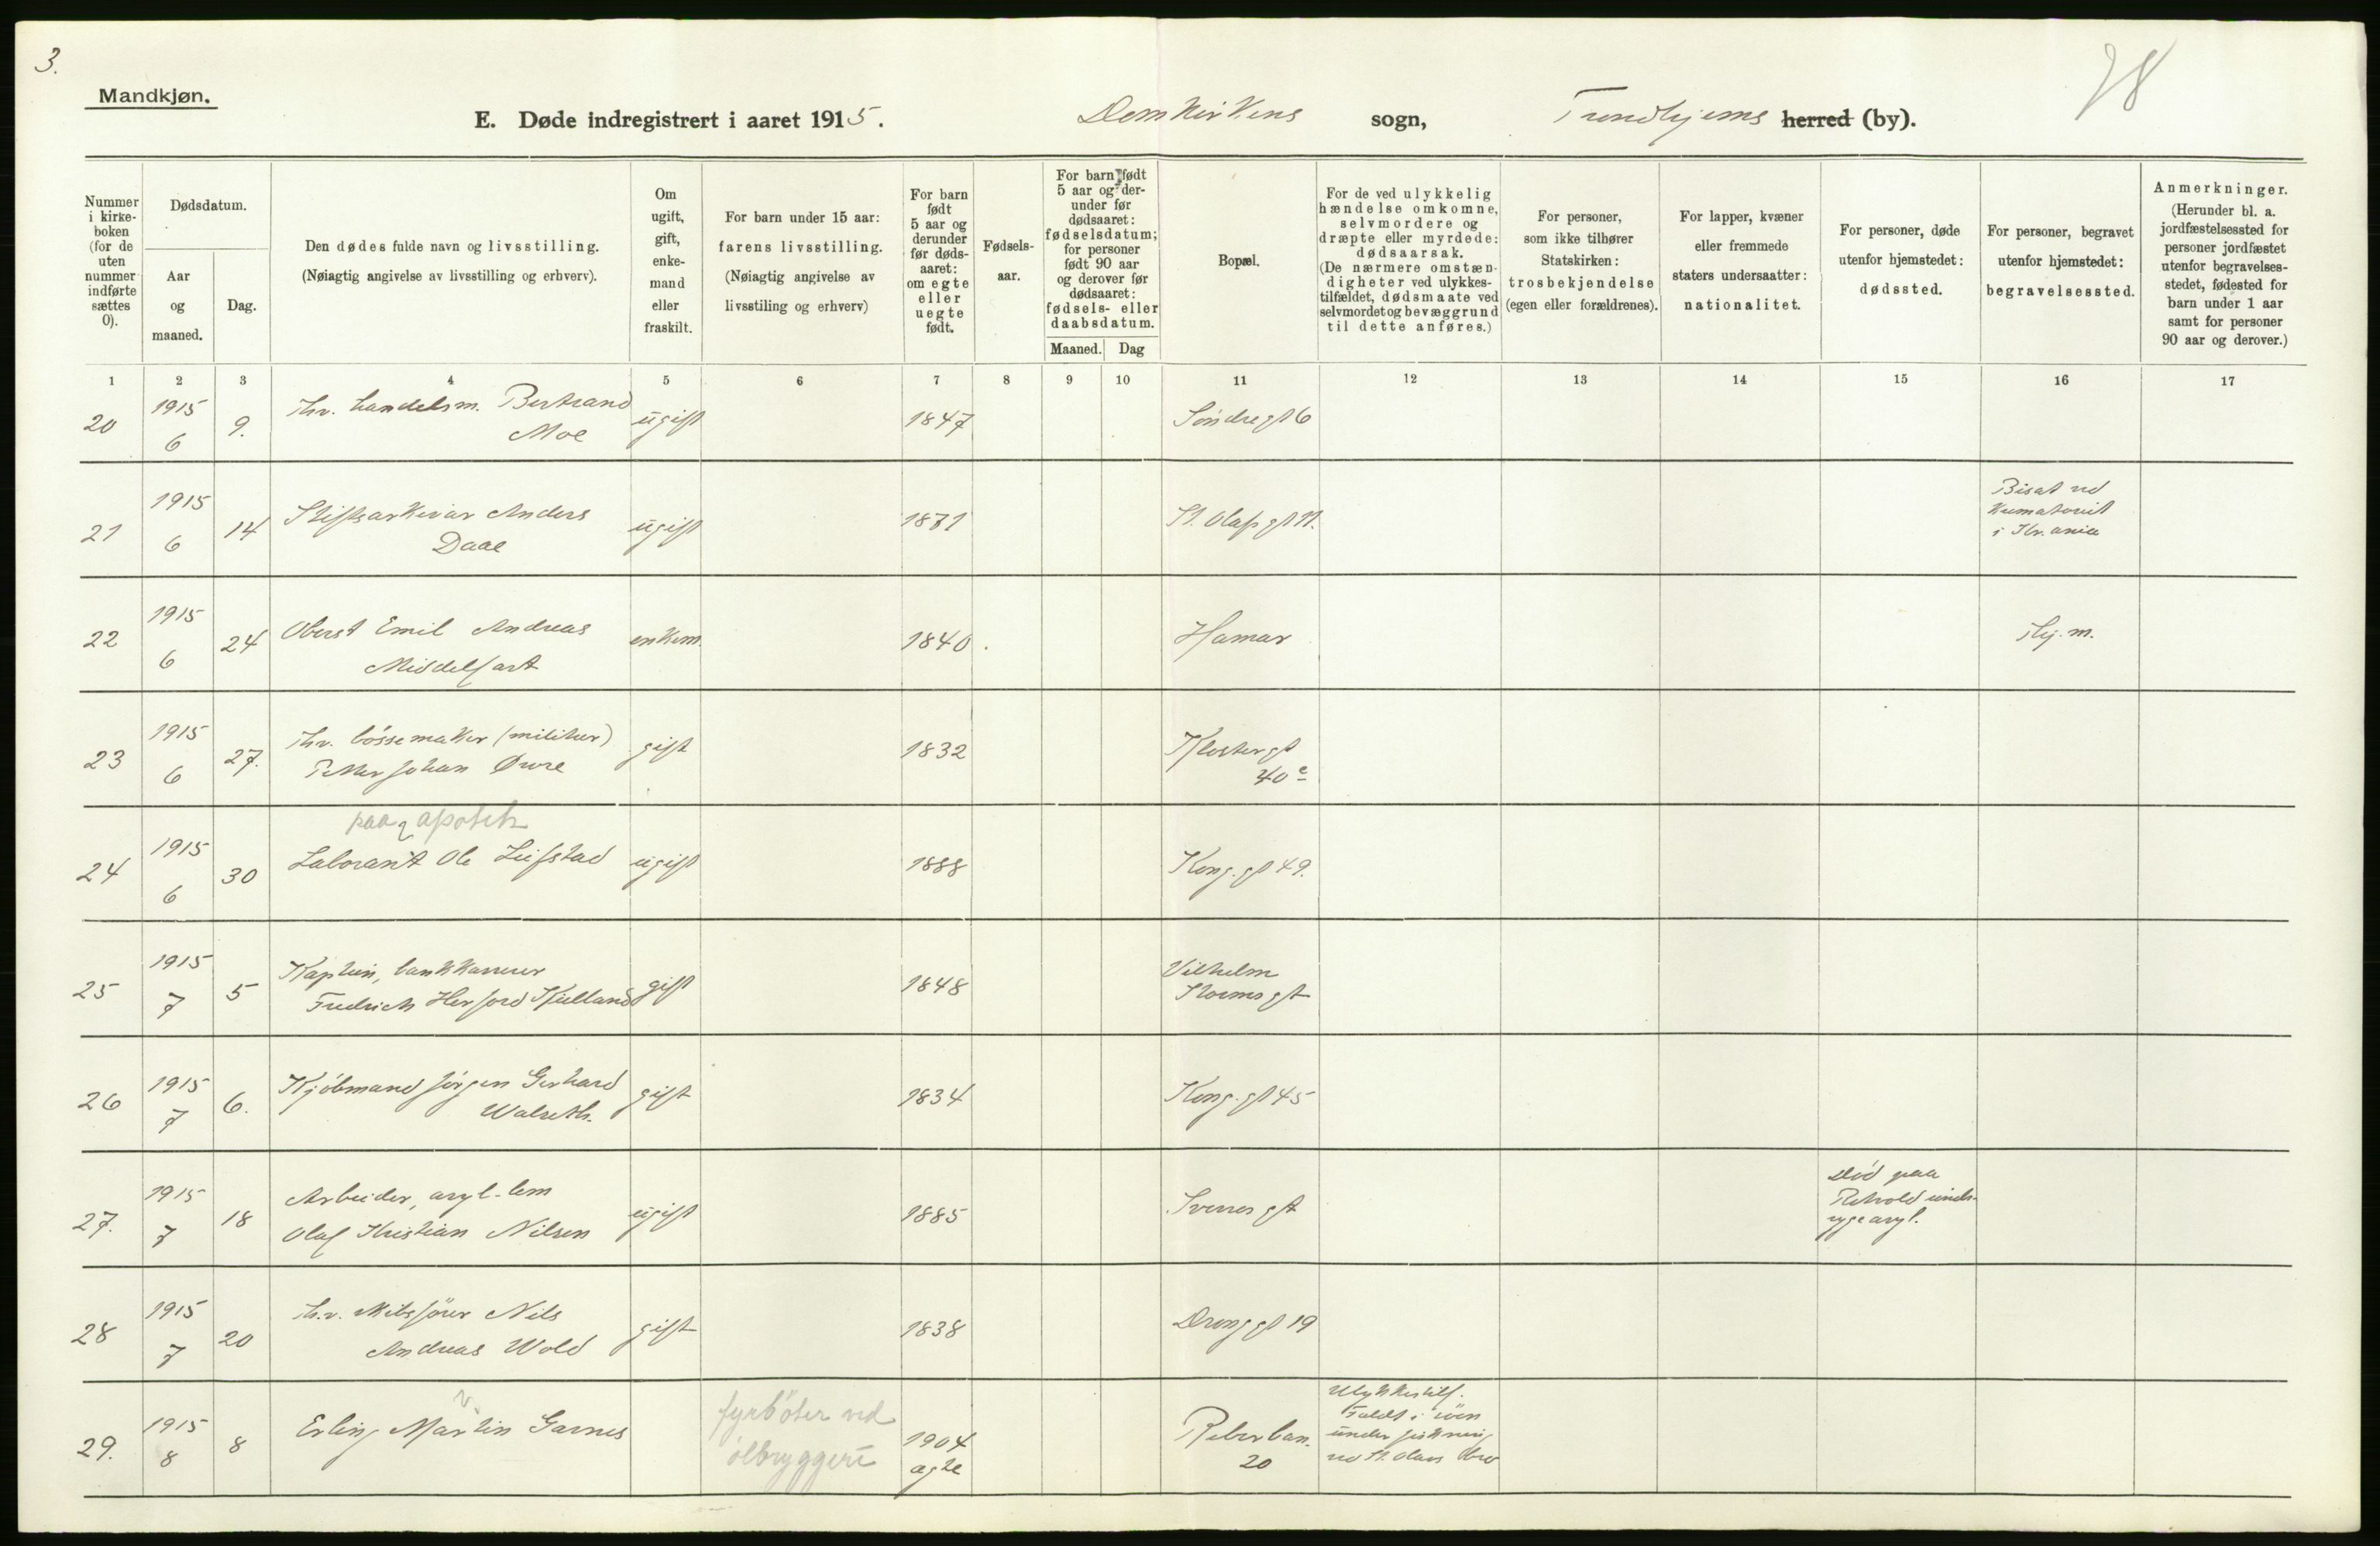 3.
78
Mandkjøn.
E. Døde indregistrert i aaret 1915. Domkirkens sogn, Trondhjems herred (by).
Nummer
i kirke-
boken
(for de
uten
nummer
indførte
sættes
0).
Dødsdatum.
Aar
og
maaned.
Dag.
Den dødes fulde navn og livsstilling.
(Nøiagtig angivelse av livsstilling og erhverv).
Om
ugift,
gift,
enke-
mand
eller
fraskilt.
For barn under 15 aar:
farens livsstilling.
(Nøiagtig angivelse av
livsstiling og erhverv)
For barn
født
5 aar og
derunder
før døds-
aaret:
om egte
eller
uegte
født.
Fødsels-
aar.
For barn født
5 aar og der-
under før
dødsaaret:
fødselsdatum;
for personer
født 90 aar
og derover før
dødsaaret:
fødsels- eller
daabsdatum.
Maaned. Dag
Bopæl.
For de ved ulykkelig
hændelse omkomne,
selvmordere og
dræpte eller myrdede:
dødsaarsak.
(De nærmere omstæn-
digheter ved ulykkes-
tilfældet, dødsmaate ved
selvmordet og bevæggrund
til dette anføres.)
For personer,
som ikke tilhører
Statskirken:
trosbekjendelse
(egen eller forældrenes).
For lapper, kvæner
eller fremmede
staters undersaatter:
nationalitet.
For personer, døde
utenfor hjemstedet:
dødssted.
For personer, begravet
utenfor hjemstedet:
begravelsessted.
Anmerkninger.
(Herunder bl. a.
jordfæstelsessted for
personer jordfæstet
utenfor begravelses-
stedet, fødested for
barn under 1 aar
samt for personer
90 aar og derover.)
1 2 3 4 5 6 7 8 9 10 11 12 13 14 15 16 17
20 1915 6 9. fhv. handelsm. Bertrand
Moe ugift 1847 Söndregt 6
21 1915 6 14 Stiftsarkivar Anders
Daae ugift 1871 St. Olafs gt 11.
Bisat ved
Krematoriet
i Kr.ania
22 1915 6 24 Oberst Emil Andreas
Middelfart enkem. 1840. Hamar Thj.m.
23 1915 6 27. fhv. bössemaker (militær)
Petter Johan Øwre gift 1832 Klostergt
40 c
24 1915 6 30 paa apotek
Laborant Ole Leifstad ugift 1888 Kong. gt 49.
25 1915 7 5 Kaptein, bankkasserer
Fredrich Herford Kielland gift 1848 Vilhelm
Stormsgt
26 1915 7 6. Kjöbmand Jörgen Gerhard
Walseth. gift 1834 Kong. gt 45
27. 1915 7 18 Arbeider, asyl-lem
Olaf Kristian Nilsen ugift 1885 Sverresgt
Död paa
Rotvold sinds-
sygeasyl.
28 1915 7 20 fhv. Nils
Andreas Wold gift 1838 Drong gt 19
29. 1915 8 8 Erling Martin Garnes
fyrböter ved
ölbryggeri
1904
ægte
Reberban.
20
Ulykkestilf.
Faldt i
under fiskning
ved St. Olavs